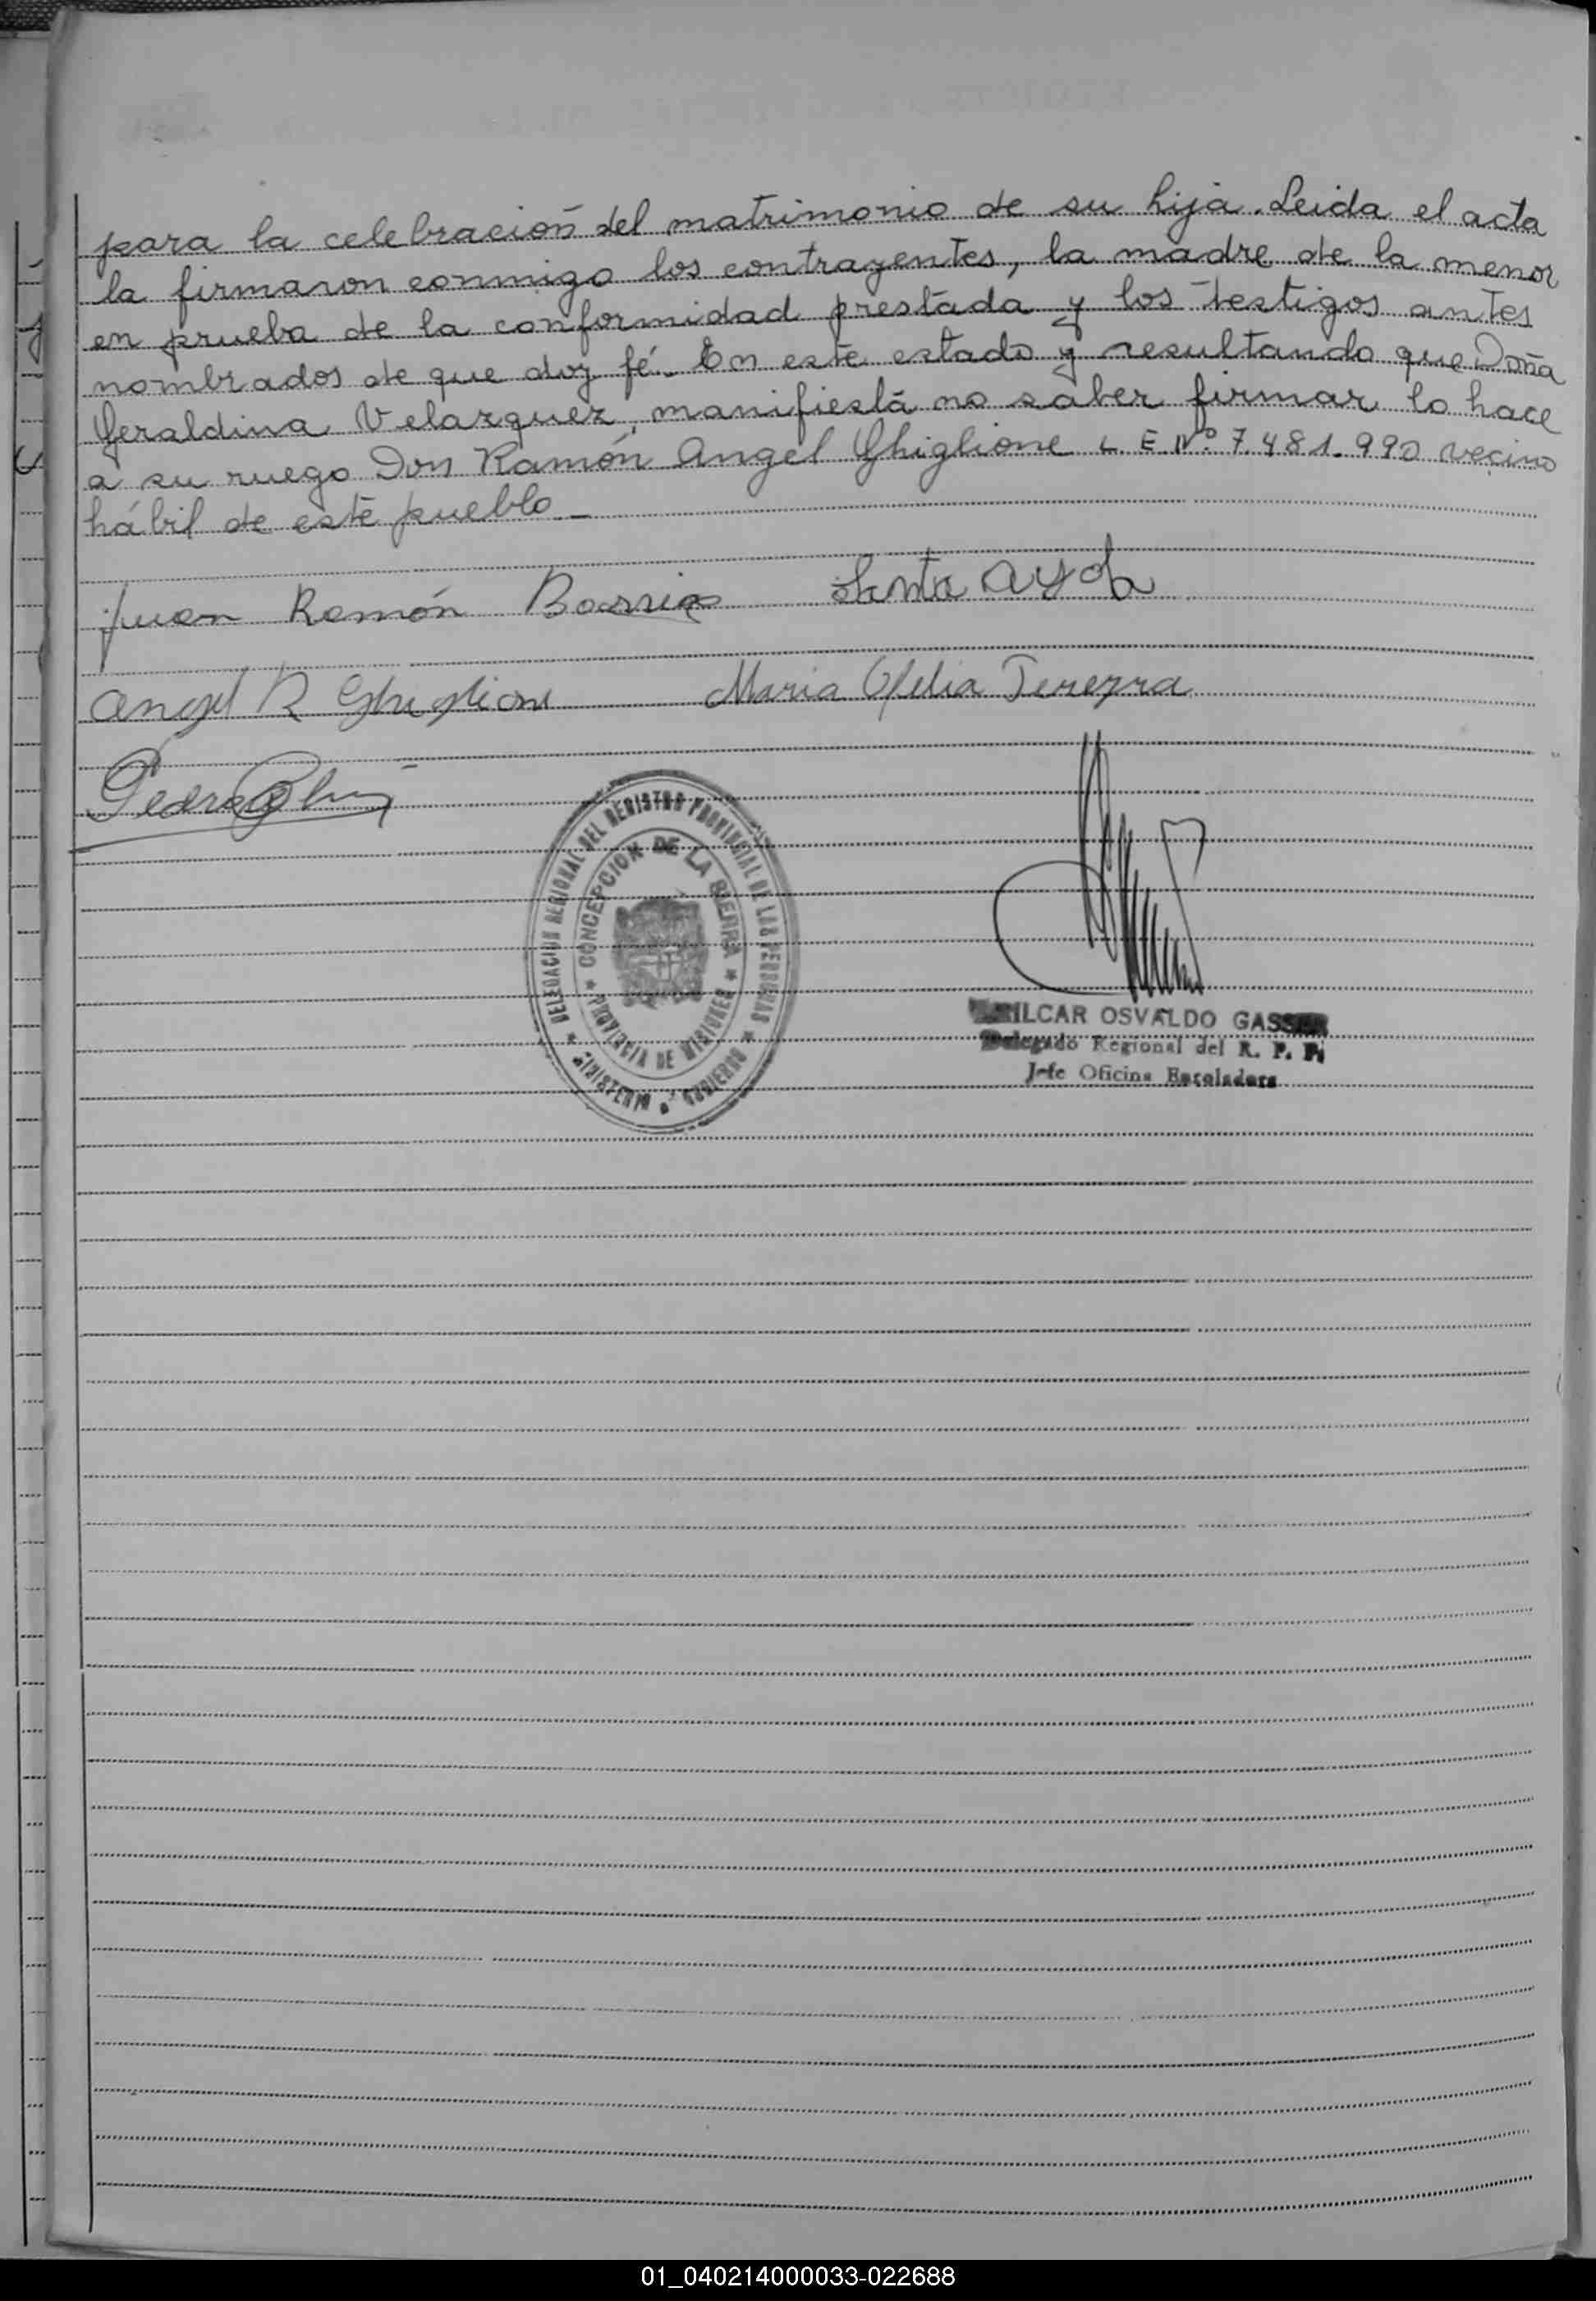 para la celebración del matrimonio de su hija. Leida el acta
la firmaron conmigo los contrayentes, la madre de la menor
en prueba de la conformidad prestada y los testigos antes
nombrados de que doy fé. En este estado y resultando que Doña
Geraldina Velazquez, manifiesta no saber firmar lo hace
a su ruego Don Ramón Angel Ghiglione L. E. Nº 7.481.990 vecino
hábil de este pueblo.-
Juan Ramón Barrios Santa Ayala
Angel R Ghiglione Maria Ofelia Terezra
Pedro
DELEGACION REGIONAL DEL REGISTRO PROVINCIAL DE LAS PERSONAS
CONCEPCION DE LA SIERRA
PROVINCIA DE MISIONES
MINISTERIO GOBIERNO
OSVALDO GASSER
Delegado Regional del R. P. P.
Jefe Oficina Enroladora
01_040214000033-022688